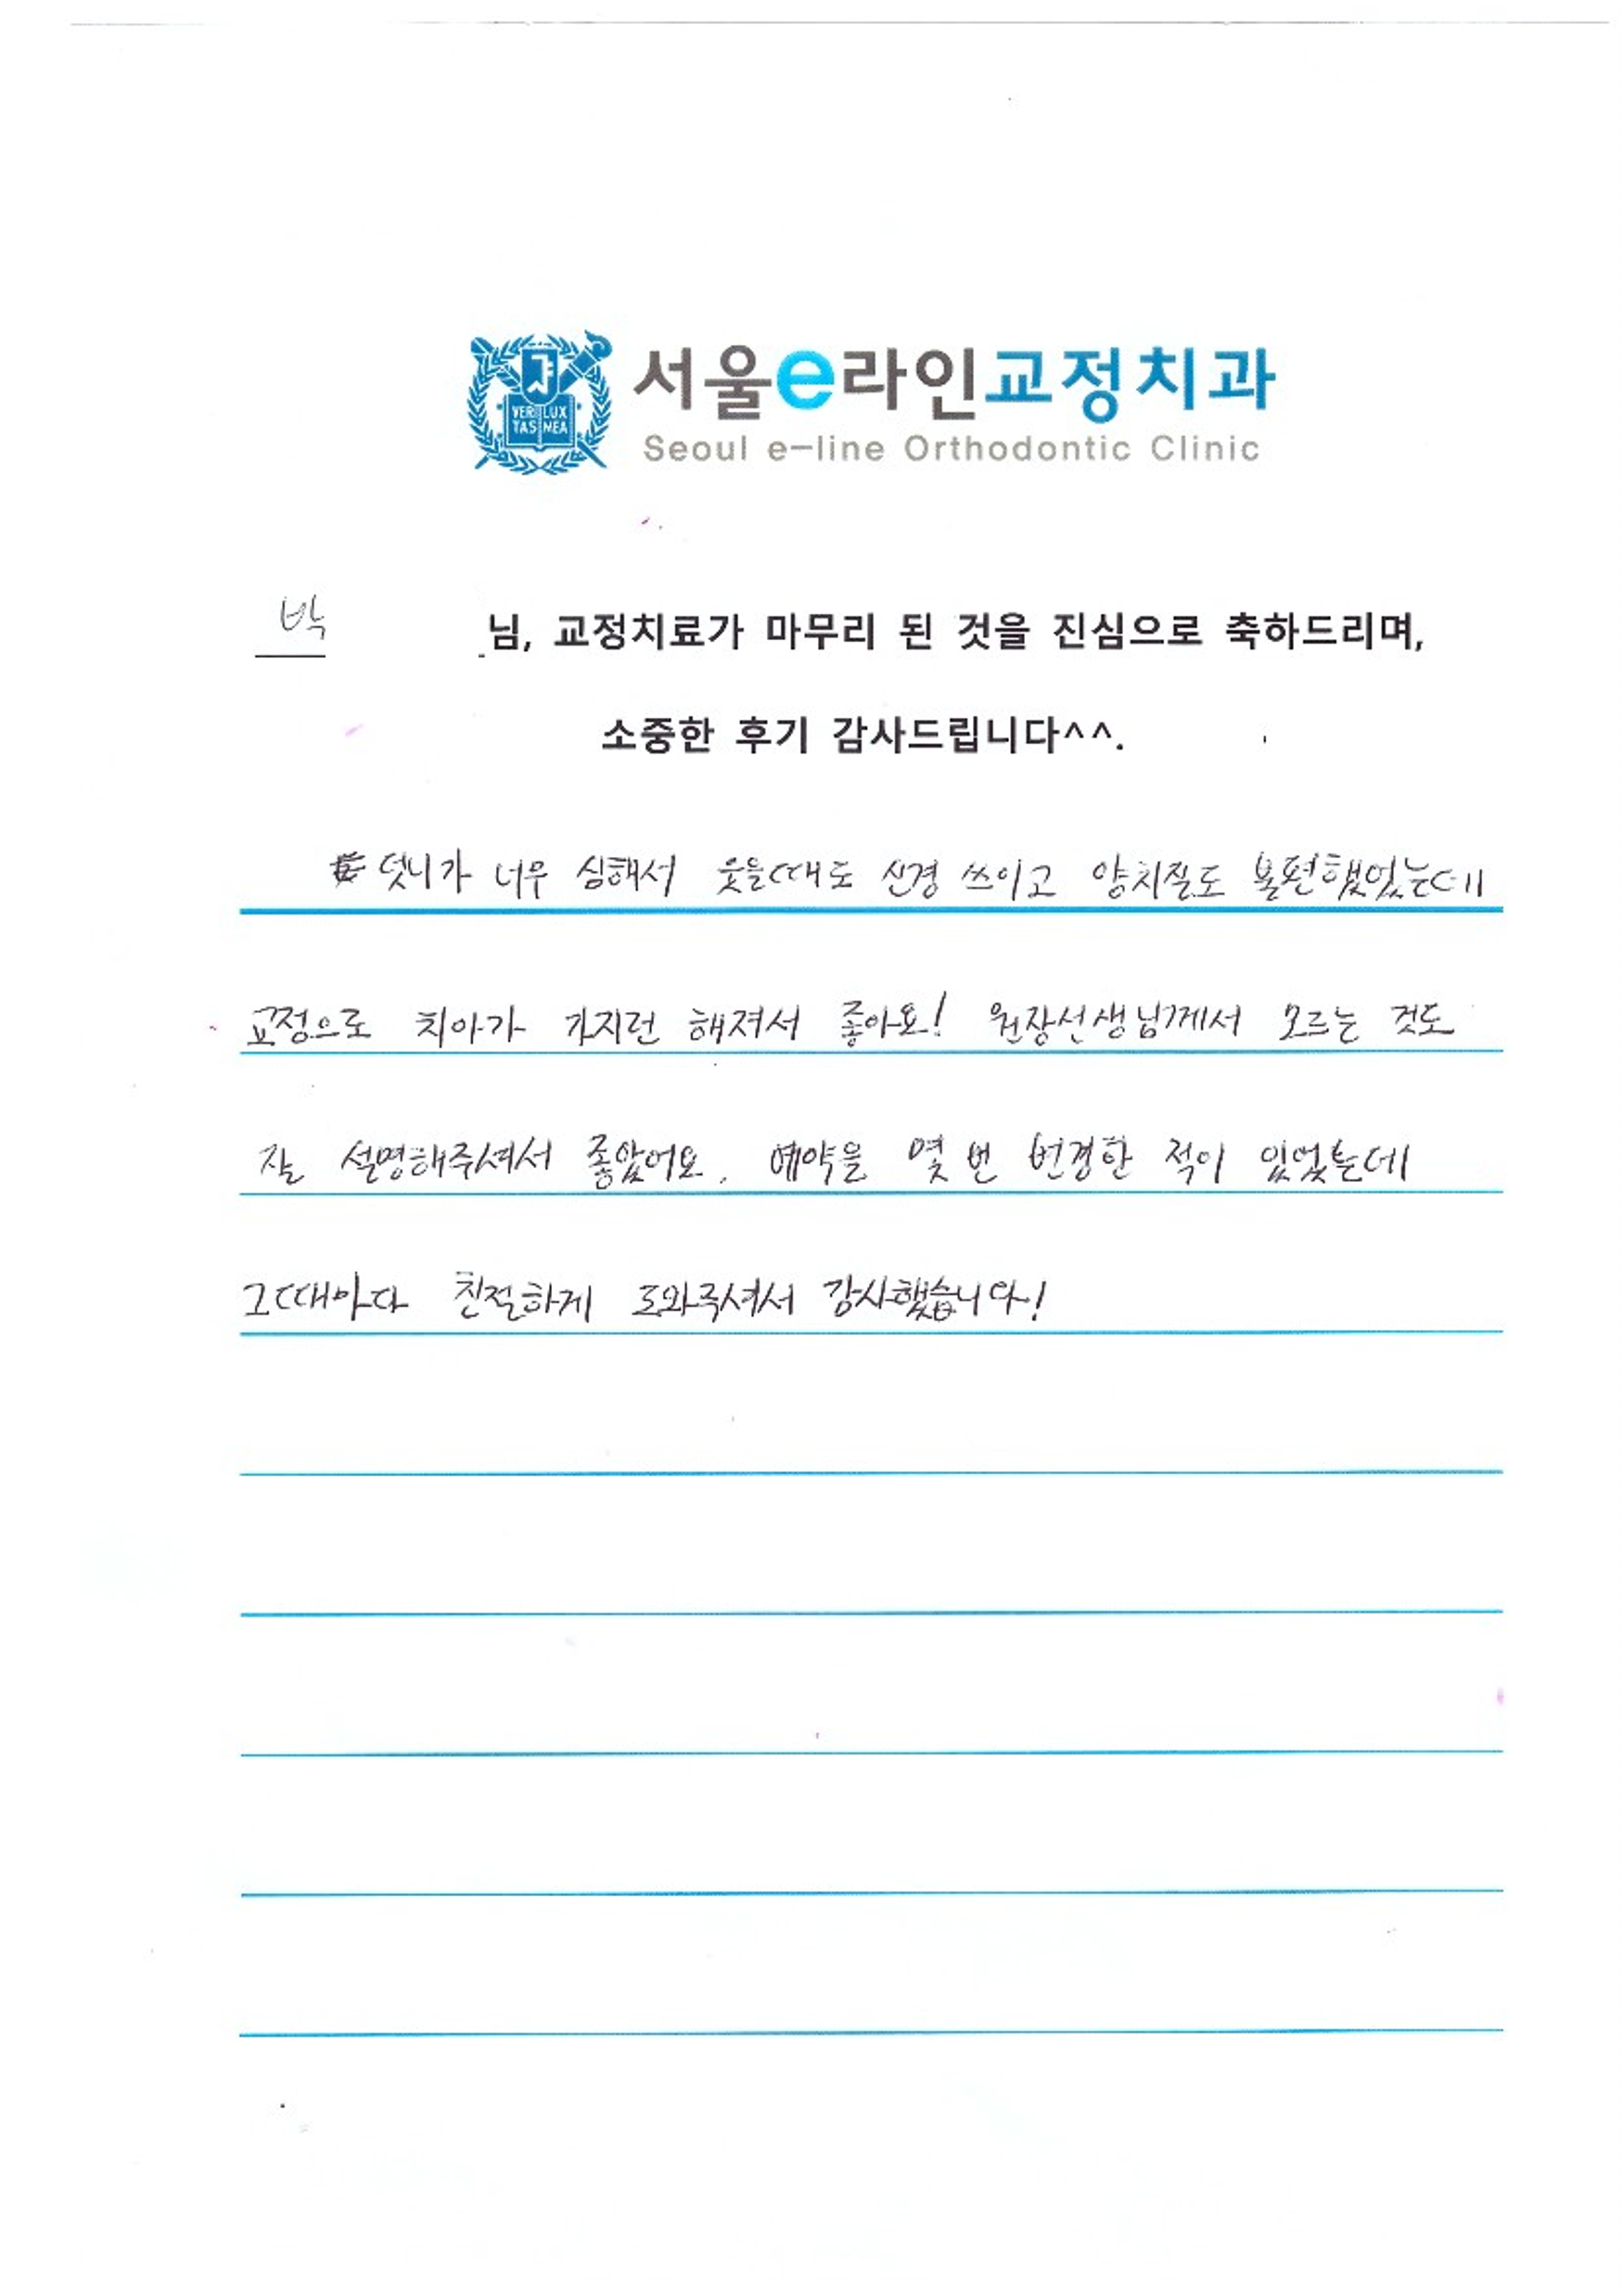 VERI LUX
TAS MEA
서울e라인교정치과
Seoul e-line Orthodontic Clinic
박 님, 교정치료가 마무리 된 것을 진심으로 축하드리며,
소중한 후기 감사드립니다^^.
덧니가 너무 심해서 웃을때도 신경 쓰이고 양치질도 불편했었는데
교정으로 치아가 가지런 해져서 좋아요! 원장선생님께서 모르는 것도
잘 설명해주셔서 좋았어요. 예약을 몇 번 변경한 적이 있었는데
그때마다 친절하게 도와주셔서 감사했습니다!